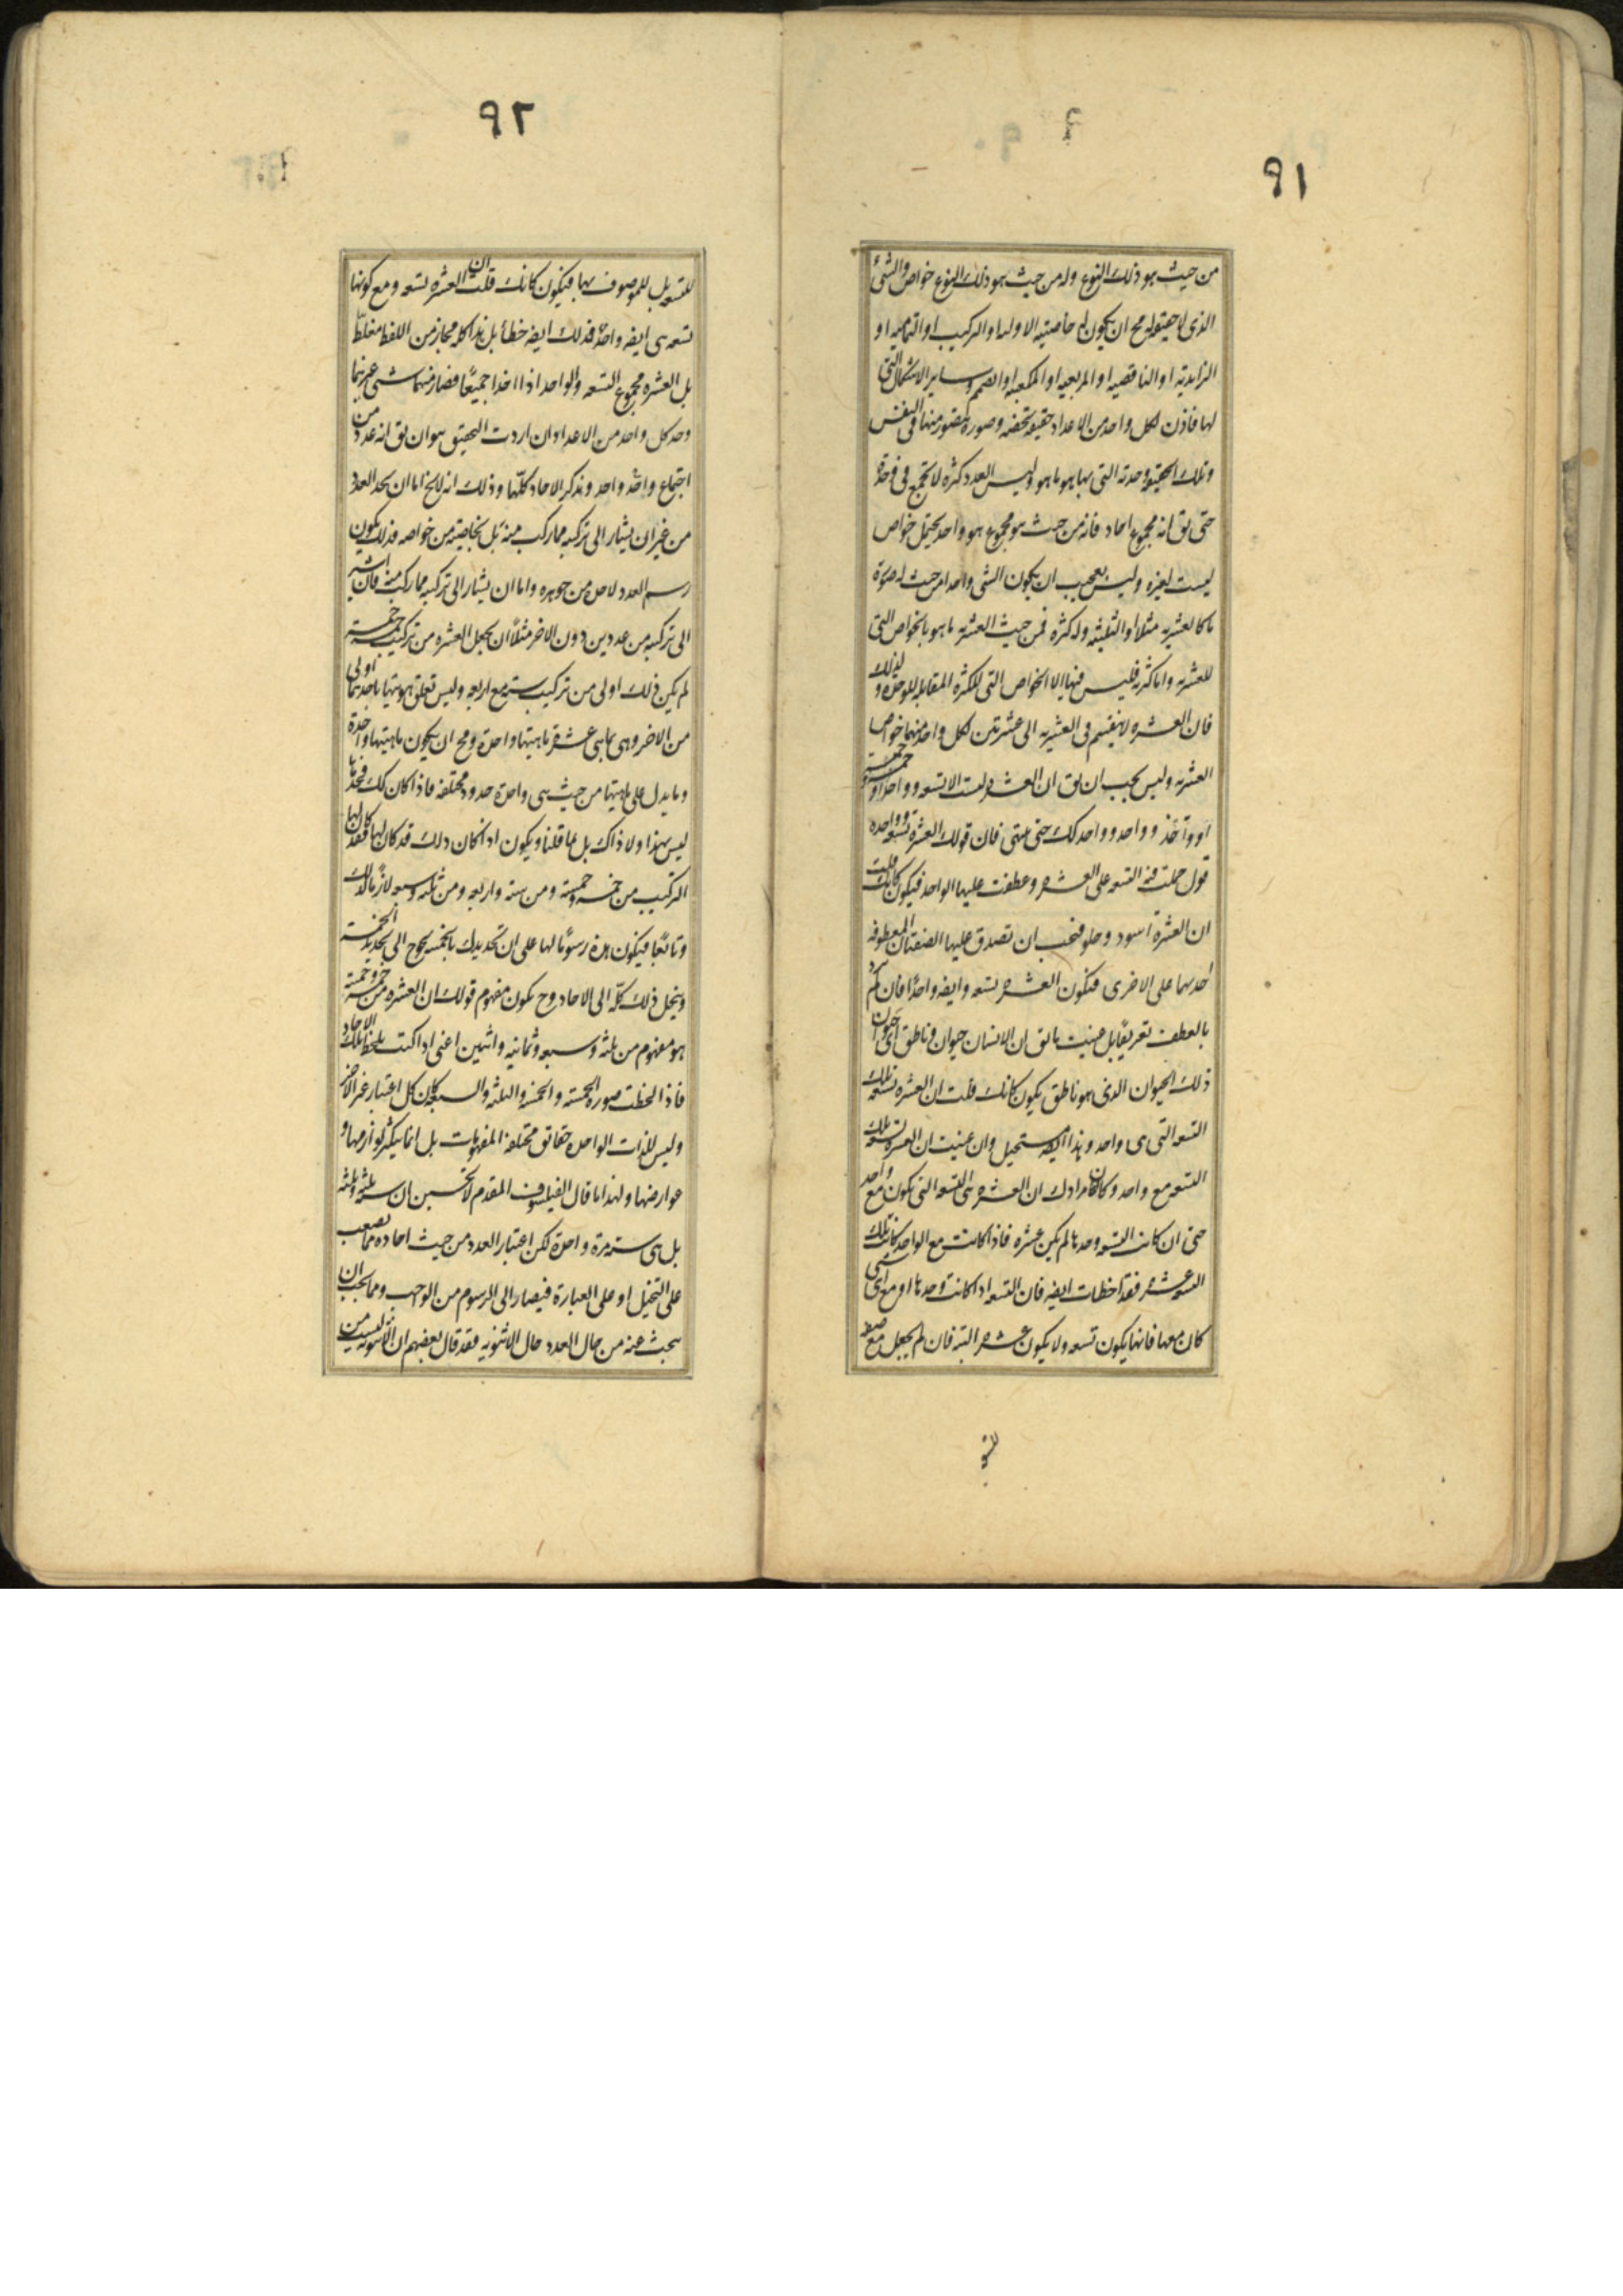 ٩١
من حيث هو ذلك النوع وله من حيث هو ذلك النوع خواص والشئ
الذى لا حقيقة له مح ان يكون له خاصية الاولية او التركيب او التمامية او
الزايدية او الناقصية او المربعية او المكعبية او الصمم وساير الاشكال التى
لها فاذن لكل واحد من الاعداد حقيقة تخصه وصورة يتصور منها فى النفس
وتلك الحقيقة وحدته التى بها هو ما هو وليس العدد كثرة لا تجتمع فى وحدة
حتى يق انه مجموع احاد فانه من حيث هو مجموع هو واحد يحتمل خواص
ليست لغيره وليس بعجيب ان يكون الشى واحدا من حيث له صورة
ما كالعشرية مثلا او الثلثية وله كثرة فمن حيث العشرية ما هو بالخواص التى
للعشرية واما كثرته فليس فيها الا الخواص التى للكثرة المقابلة للوحدة ولذلك
فان العشرة لا ينقسم فى العشرية الى عشرتين لكل واحد منهما خواص
العشرية وليس يجب ان يق ان العشرة ليست الا تسعة وواحدا او خمسة وخمسة
او واحد وواحد وواحد كك حتى ينتهى فان قولك العشرة تسعة وواحده
قول حملت فيه التسعة على العشرة وعطفت عليها الواحد فيكون كانك قلت
ان العشرة اسود وحلو فيجب ان تصدق عليها الصفتان المعطوفة
احديهما على الاخرى فيكون العشرة تسعة وايضه واحدا فان لم ترد
بالعطف تعريفا بل عنيت ما يق ان الانسان حيوان وناطق اى حيوان
ذلك الحيوان الذى هو ناطق يكون كانك قلت ان العشرة تسعة تلك
التسعة التى هى واحد وهذا ايضه مستحيل وان عنيت ان العشرة تسعة تلك
التسعة مع واحد وكان مرادك ان العشرة هى التسعة التى يكون مع واحد
حتى ان كانت التسعة وحدها لم يكن عشرة فاذا كانت مع الواحد كانت تلك
التسعة عشرة فقد اخطات ايضه فان التسعة اذا كانت وحدها او مع اى شى
كان معها فانها يكون تسعة ولا يكون عشرة البتة فان لم يجعل مع صفة
٩٢
للتسعة بل للموصوف بها فيكون كانك قلت ان العشرة تسعة ومع كونها
تسعة هى ايضه واحد فذلك ايضه خطأ بل هذا كله مجاز من اللفظ مغلط
بل العشرة مجموع التسعة والواحد اذا اخذا جميعا فصار منهما شى غيرهما
وحد كل واحد من الاعداد ان اردت التحقيق هو ان يق انه عدد من
اجتماع واحد وواحد وتذكر الاحاد كلها وذلك انه لا يخ اما ان يحد العدد
من غير ان يشار الى تركيبه مما ركب منه بل بخاصية من خواصه فذلك يكون
رسم العدد لا حده من جوهره واما ان يشار الى تركيبه مما ركب منه فان اشير
الى تركيبه من عددين دون الاخر مثلا ان يجعل العشرة من تركيب خمسة
لم يكن ذلك اولى من تركيب ستة مع اربعة وليس تعلق هويتها باحدهما اولى
من الاخر وهى بما هى عشرة ماهيتها واحدة ومح ان يكون ماهيتها واحدة
وما يدل على ماهيتها من حيث هى واحدة حدود مختلفة فاذا كان كك فحدها
ليس بهذا ولا ذاك بل بما قلنا ويكون اذا كان ذلك قد كان لها فقد كان لها
التركيب من خمسة وخمسة ومن ستة واربعة ومن ثلثة وسبعة لازما لذلك
وتابعا فيكون هذه رسوما لها على ان تحديدك بالخمسة يحوج الى تحديد الخمسة
وينحل ذلك كله الى الاحاد وح يكون مفهوم قولك ان العشرة من خمسة وخمسة
هو مفهوم من ثلثة وسبعة وثمانية واثنين اعنى اذا كنت يلحظ تلك الاحاد
فاذا لحظت صورة الخمسة والخمسة والثلثة والسبعة كان كل اعتبار غير الاخر
وليس للذات الواحدة حقائق مختلفة المفهومات بل انما يتكثر لوازمها و
عوارضها ولهذا ما قال الفيلسوف المقدم لا تحسبن ان ستة ثلثة وثلثة
بل هى ستة مرة واحدة لكن اعتبار العدد من حيث احاده مما يصعب
على التخيل او على العبارة فيصار الى الرسوم من الواجب ومما يجب ان
يبحث عنه من حال العدد حال الاثنوية فقد قال بعضهم ان الاثنوية ليست من